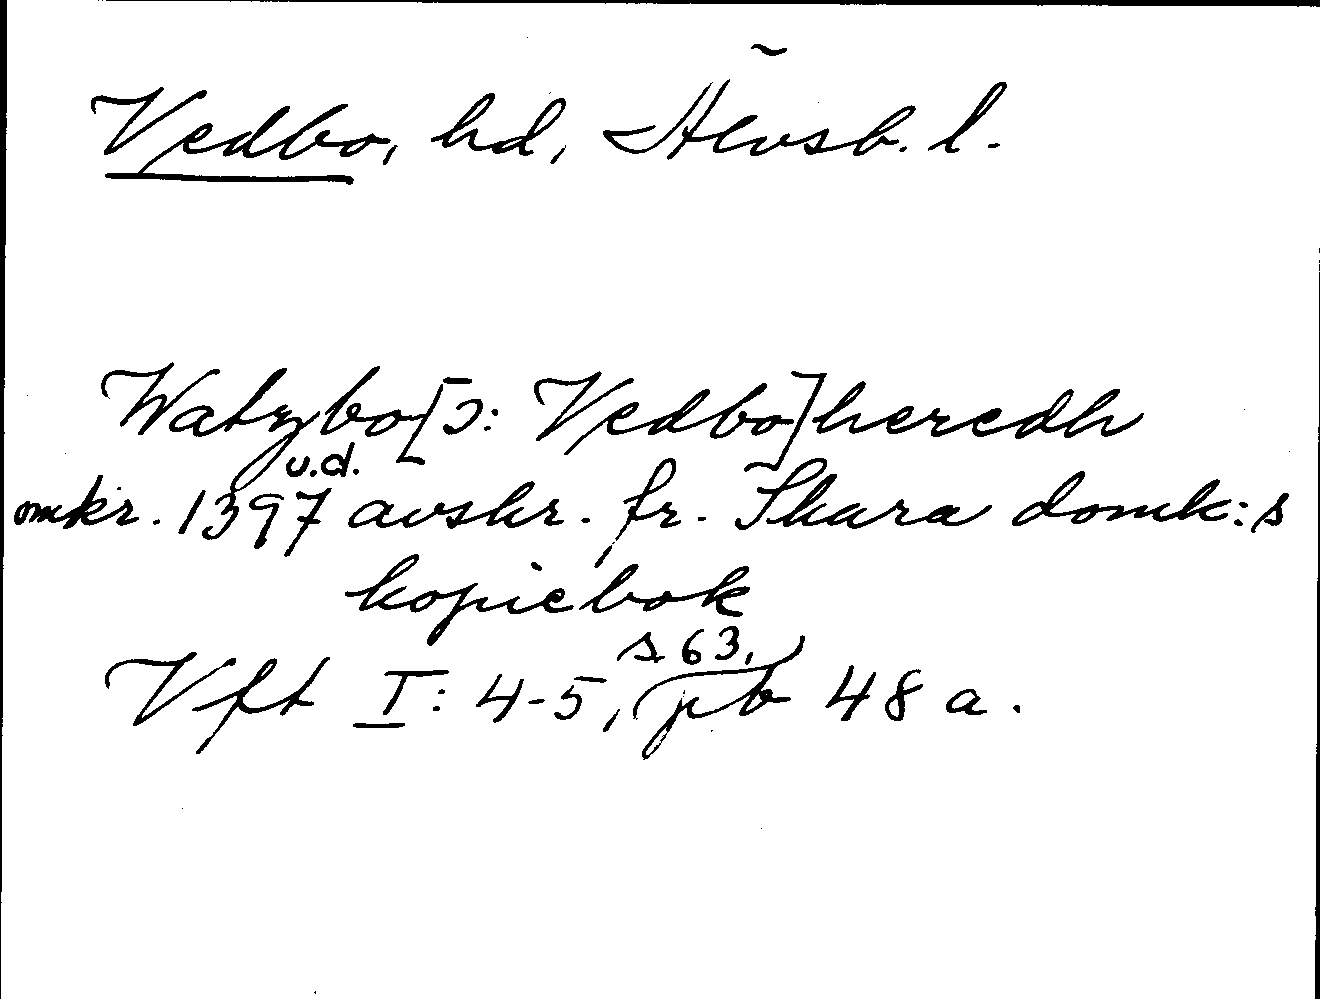 Vedbo, hd, Älvsb. l.
Watzbo[ɔ: Vedbo]heredh
omkr. 1397 u.d. avskr. fr. Skara domk:s
kopiebok
Vft I: 4-5, s 63, pb 48 a.